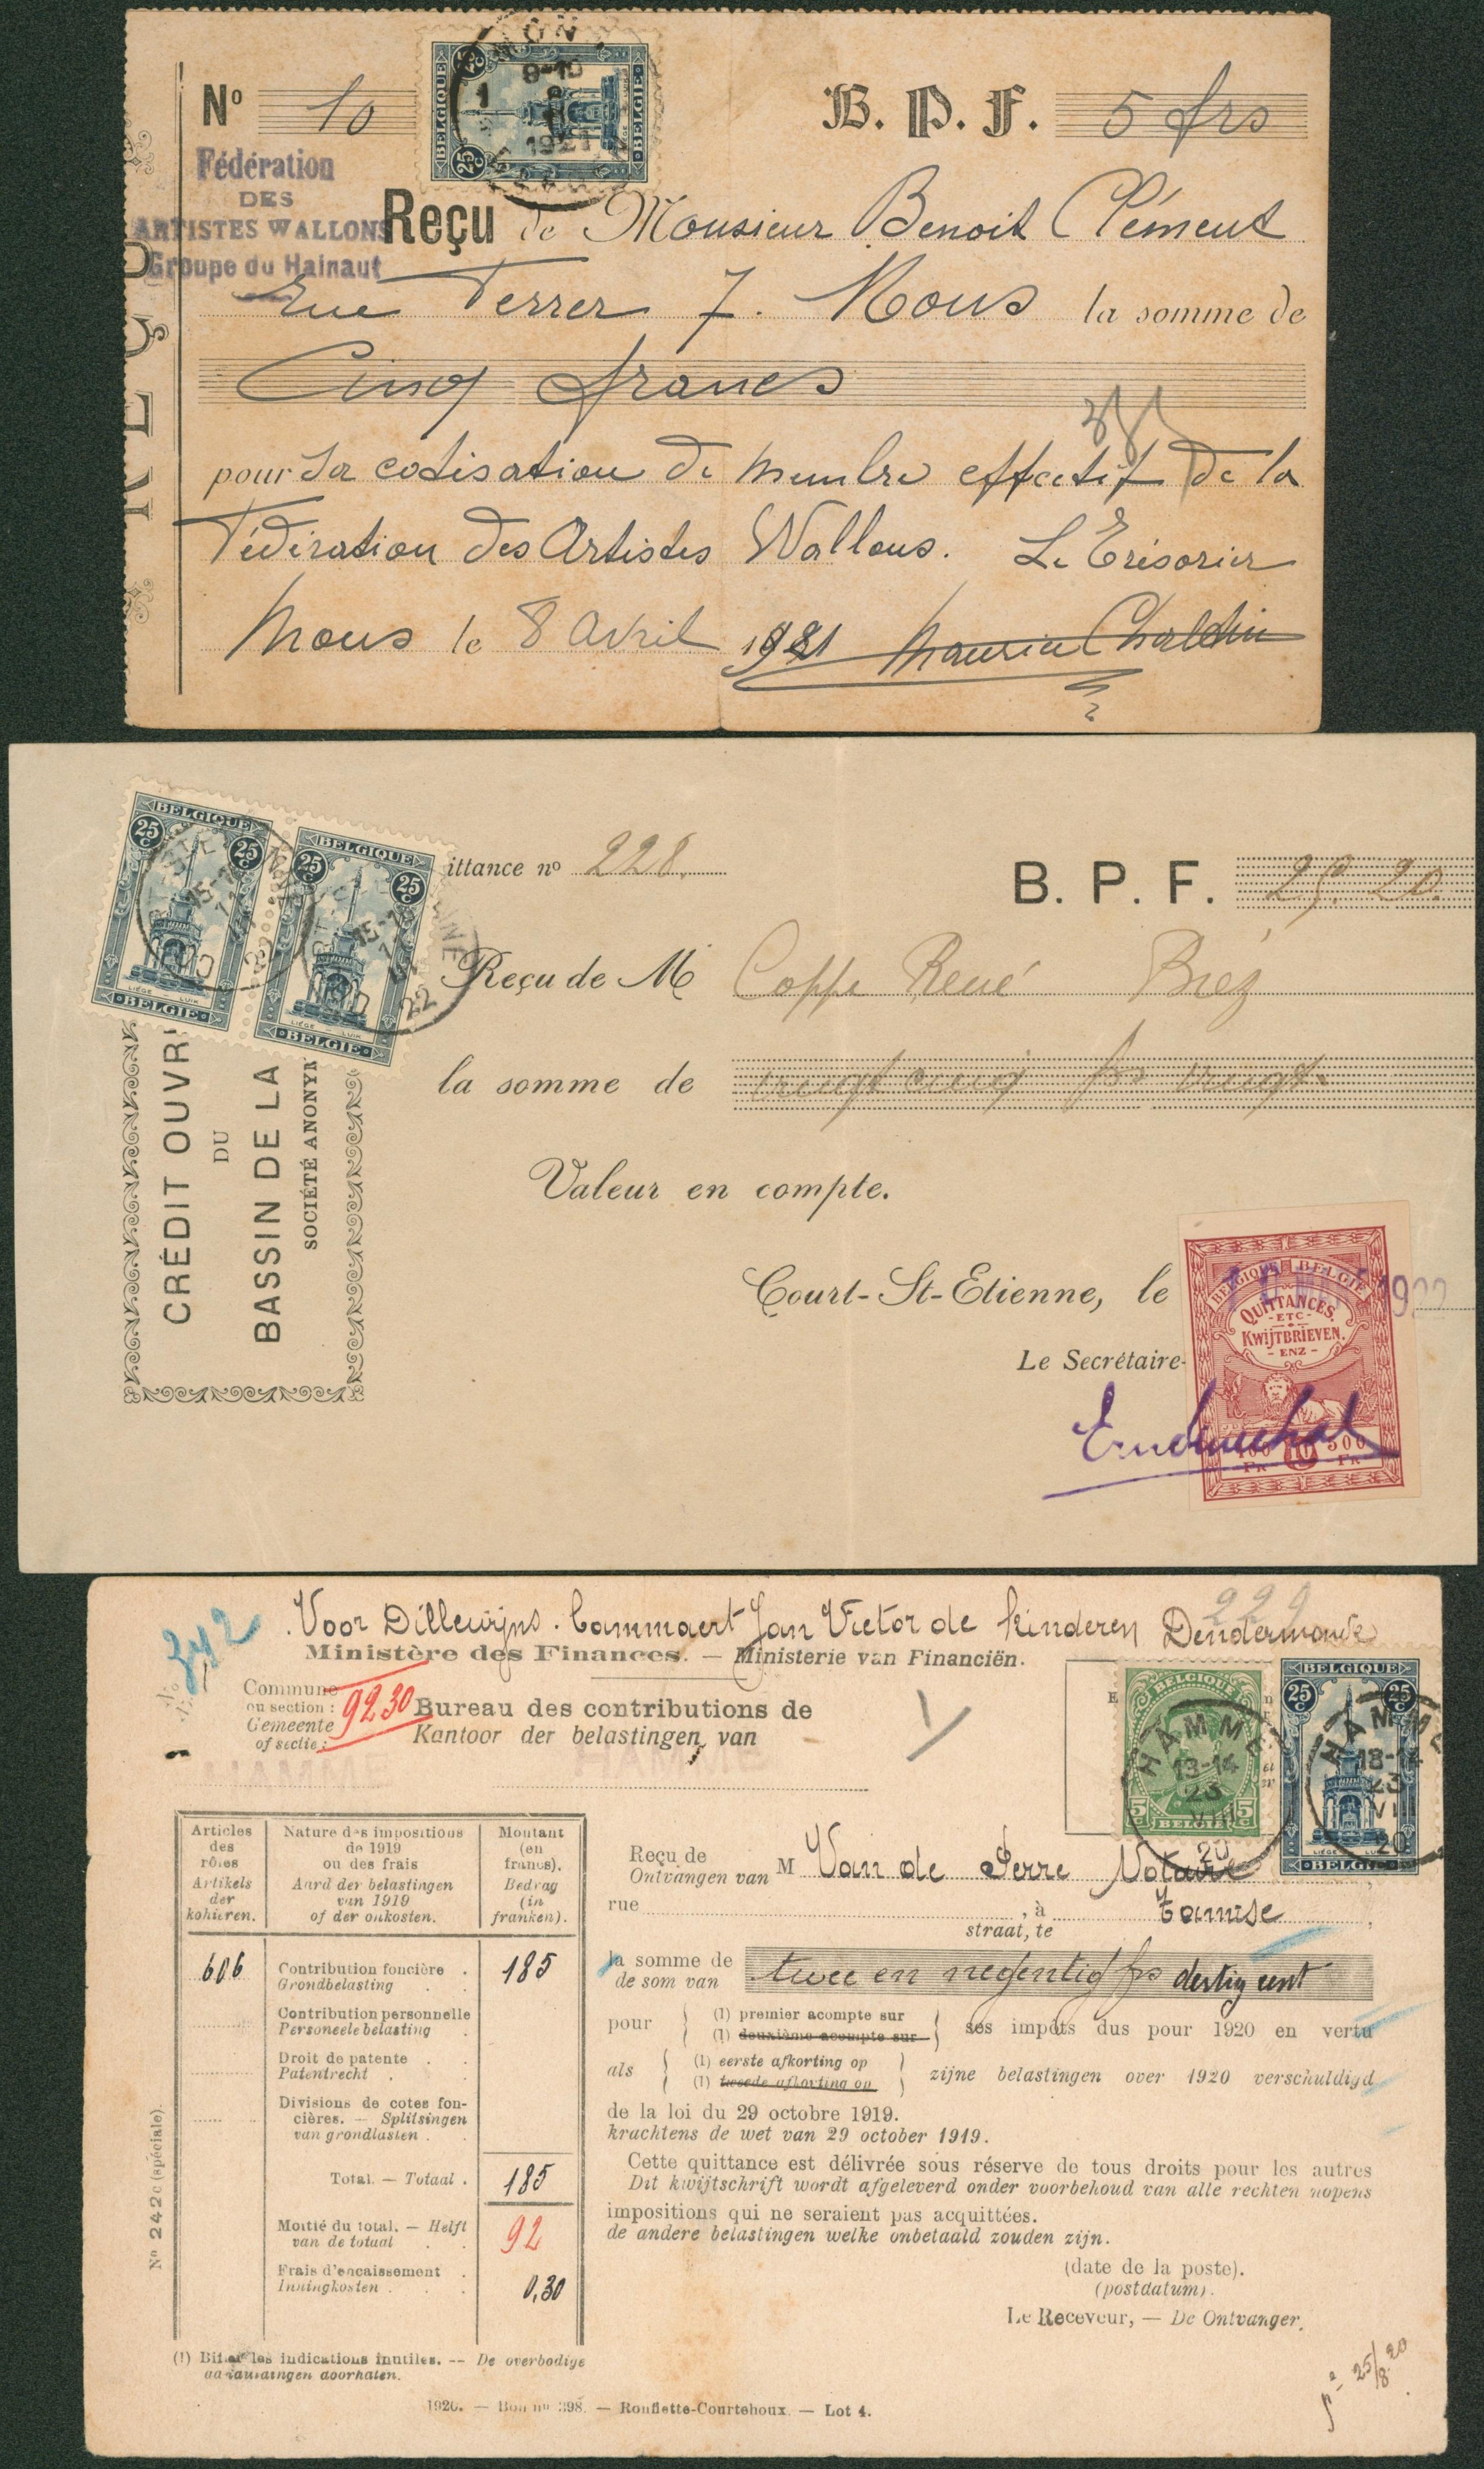 Nº 10
BELGIQUE
25 C
25 C
LIÉGE
BELGIE
MONS
9-10
8
1921
B. P. F. 5 frs
Fédération
DES
ARTISTES WALLONS
Groupe du Hainaut
REÇU
Reçu de Monsieur Benoit Clément
Rue Ferrer 7. Mons la somme de
Cinq francs
pour sa cotisation de membre effectif de la
Fédération des Artistes Wallons. Le Trésorier
Mons le 8 Avril 1921 Maurice Chaldin
BELGIQUE
25 C
25 C
LIÉGE LUIK
BELGIE
BELGIQUE
25 C
25 C
LIÉGE LUIK
BELGIE
22
ittance nº 228.
B. P. F. 25.20.
Reçu de M Coppe René Brez
la somme de vingt cinq frs vingt
CRÉDIT OUVRI
DU
BASSIN DE LA
SOCIÉTÉ ANONYM
Valeur en compte.
Court-St-Etienne, le 1922
Le Secrétaire-
BELGIQUE BELGIE
QUITTANCES.
- ETC -
KWIJTBRIEVEN.
- ENZ -
100 10 500
FR FR
Voor Dilleurijns. Cammaert Jan Victor de Kinderen Dendermonde
229
342
Ministère des Finances. — Ministerie van Financiën.
Commune
ou section :
Gemeente
of sectie :
9230
Bureau des contributions de
Kantoor der belastingen van
HAMME
HAMME
BELGIQUE
5C 5C
BELGIË
HAMME
13-14
23
VIII
20
BELGIQUE
25 C
25 C
LIÉGE LUIK
BELGIE
HAMME
13-14
23
VIII
20
Articles
des
rôles
Artikels
der
kohieren.
Nature des impositions
de 1919
ou des frais
Aard der belastingen
van 1919
of der onkosten.
Montant
(en
francs).
Bedrag
(in
franken).
606 Contribution foncière . 185
Grondbelasting
Contribution personnelle
Personeele belasting
Droit de patente
Patentrecht
Divisions de cotes fon-
cières. — Splitsingen
van grondlasten
Total. — Totaal . 185
Moitié du total. — Helft 92
van de totaal
Frais d'encaissement
Inningkosten 0,30
Reçu de
Ontvangen van M Van de Perre Notaire
rue , à Tamise ,
straat, te
la somme de
de som van twee en negentig frs dertig cent
pour (1) premier acompte sur
(1) deuxième acompte sur
ses impôts dus pour 1920 en vertu
als (1) eerste afkorting op
(1) tweede afkorting op
zijne belastingen over 1920 verschuldigd
de la loi du 29 octobre 1919.
krachtens de wet van 29 october 1919.
Cette quittance est délivrée sous réserve de tous droits pour les autres
Dit kwijtschrift wordt afgeleverd onder voorbehoud van alle rechten nopens
impositions qui ne seraient pas acquittées.
de andere belastingen welke onbetaald zouden zijn.
(date de la poste).
(postdatum).
Le Receveur, — De Ontvanger.
Nº 242c (spéciale).
(1) Biffer les indications inutiles. -- De overbodige
aanduidingen doorhalen.
1920. — Bon nº 398. — Ronflette-Courtehoux. — Lot 4.
25/8 20